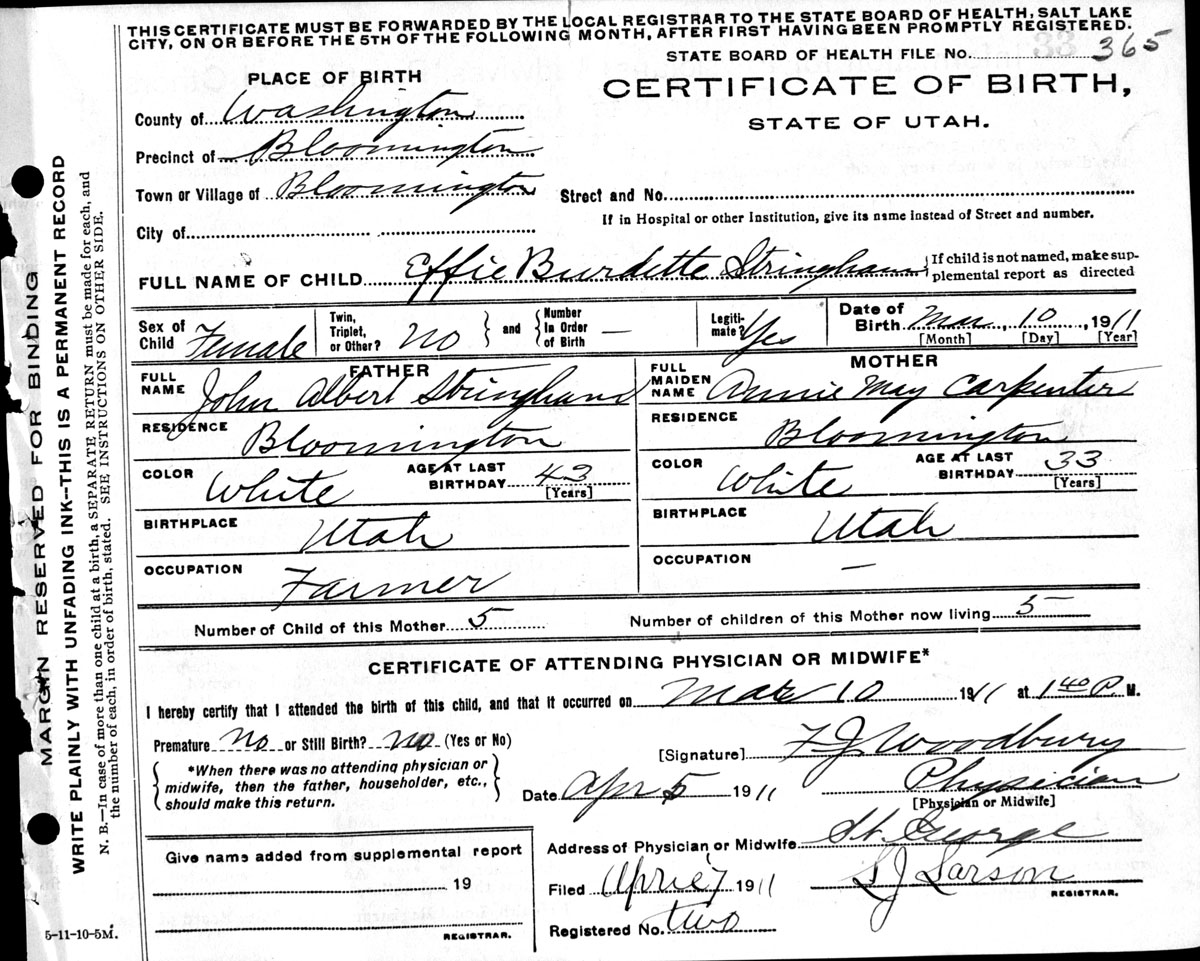 THIS CERTIFICATE MUST BE FORWARDED BY THE LOCAL REGISTRAR TO THE STATE BOARD OF HEALTH, SALT LAKE
CITY, ON OR BEFORE THE 5TH OF THE FOLLOWING MONTH, AFTER FIRST HAVING BEEN PROMPTLY REGISTERED.
STATE BOARD OF HEALTH FILE No. 365
PLACE OF BIRTH
CERTIFICATE OF BIRTH,
STATE OF UTAH.
County of Washington
Precinct of Bloomington
Town or Village of Bloomington
Street and No.
If in Hospital or other Institution, give its name instead of Street and number.
City of
FULL NAME OF CHILD Effie Burdette Stringham { If child is not named, make sup-
plemental report as directed
Sex of Child Female
Twin, Triplet, or Other? No } and { Number In Order of Birth —
Legiti-mate? Yes
Date of Birth Mar, 10, 1911
[Month] [Day] [Year]
FATHER
FULL NAME John Albert Stringham
RESIDENCE Bloomington
COLOR White AGE AT LAST BIRTHDAY 43 [Years]
BIRTHPLACE Utah
OCCUPATION Farmer
MOTHER
FULL MAIDEN NAME Annie May Carpenter
RESIDENCE Bloomington
COLOR White AGE AT LAST BIRTHDAY 33 [Years]
BIRTHPLACE Utah
OCCUPATION —
Number of Child of this Mother 5 Number of children of this Mother now living 5
CERTIFICATE OF ATTENDING PHYSICIAN OR MIDWIFE*
I hereby certify that I attended the birth of this child, and that it occurred on Mar 10 1911 at 1 40 P. M.
Premature no or Still Birth? no (Yes or No)
[Signature] F J Woodbury
{ *When there was no attending physician or
midwife, then the father, householder, etc.,
should make this return. }
Date Apr 5 1911 Physician
[Physician or Midwife]
Give name added from supplemental report
19
REGISTRAR.
Address of Physician or Midwife St. George
Filed April 7 1911 S J Larson
REGISTRAR.
Registered No. two
5-11-10-5M.
MARGIN RESERVED FOR BINDING
WRITE PLAINLY WITH UNFADING INK--THIS IS A PERMANENT RECORD
N. B.—In case of more than one child at a birth, a SEPARATE RETURN must be made for each, and
the number of each, in order of birth, stated. SEE INSTRUCTIONS ON OTHER SIDE.